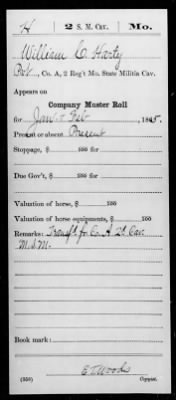 H | 2 S. M. Cav. | Mo.
William C. Harty
Pvt., Co. A, 2 Reg't Mo. State Militia Cav.
Appears on
Company Muster Roll
for Jan & Feb, 1865.
Present or absent Present
Stoppage, $ 100 for
Due Gov't, $ 100 for
Valuation of horse, $ 100
Valuation of horse equipments, $ 100
Remarks: Transf'd fr Co. A 2d Cav.
M.S.M.
Book mark:
E T Woods
(358) Copyist.